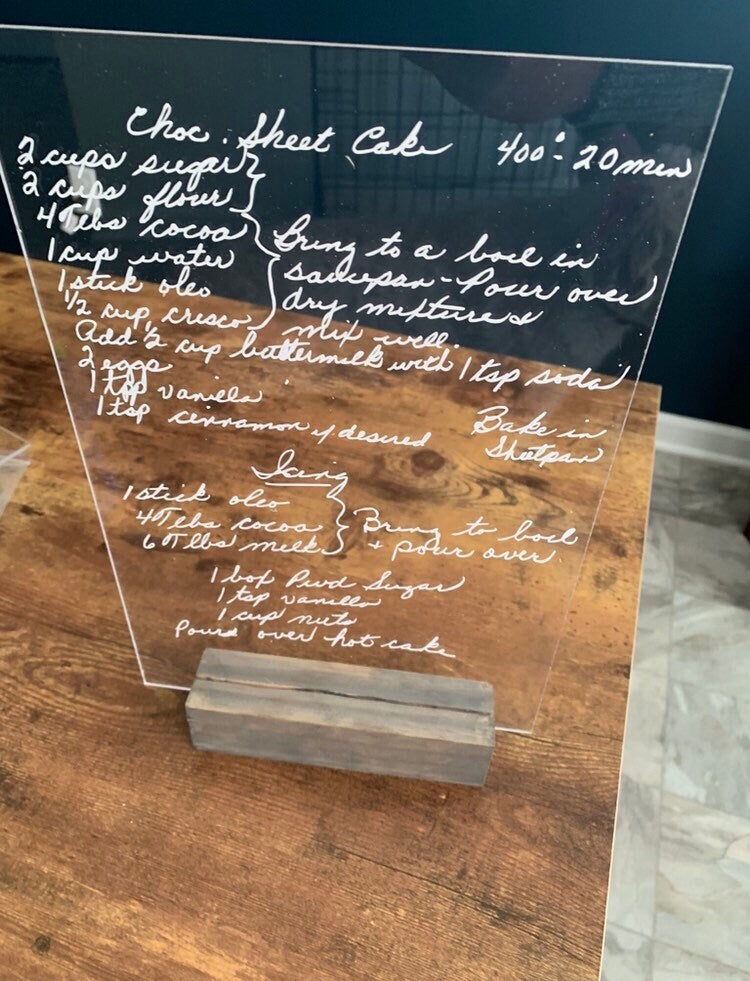 Choc. Sheet Cake 400° - 20 min
2 cups sugar
2 cups flour
4 Tbs cocoa
1 cup water
1 stick oleo
1/2 cup cresco
Bring to a boil in
saucepan - Pour over
dry mixture &
mix well.
Add 1/2 cup buttermilk with 1 tsp soda
2 eggs
1 tsp vanilla
1 tsp cinnamon if desired
Bake in
Sheetpan
Icing
1 stick oleo
4 Tbs cocoa
6 Tlbs milk
Bring to boil
+ pour over.
1 box Pwd Sugar
1 tsp vanilla
1 cup nuts
Pour over hot cake